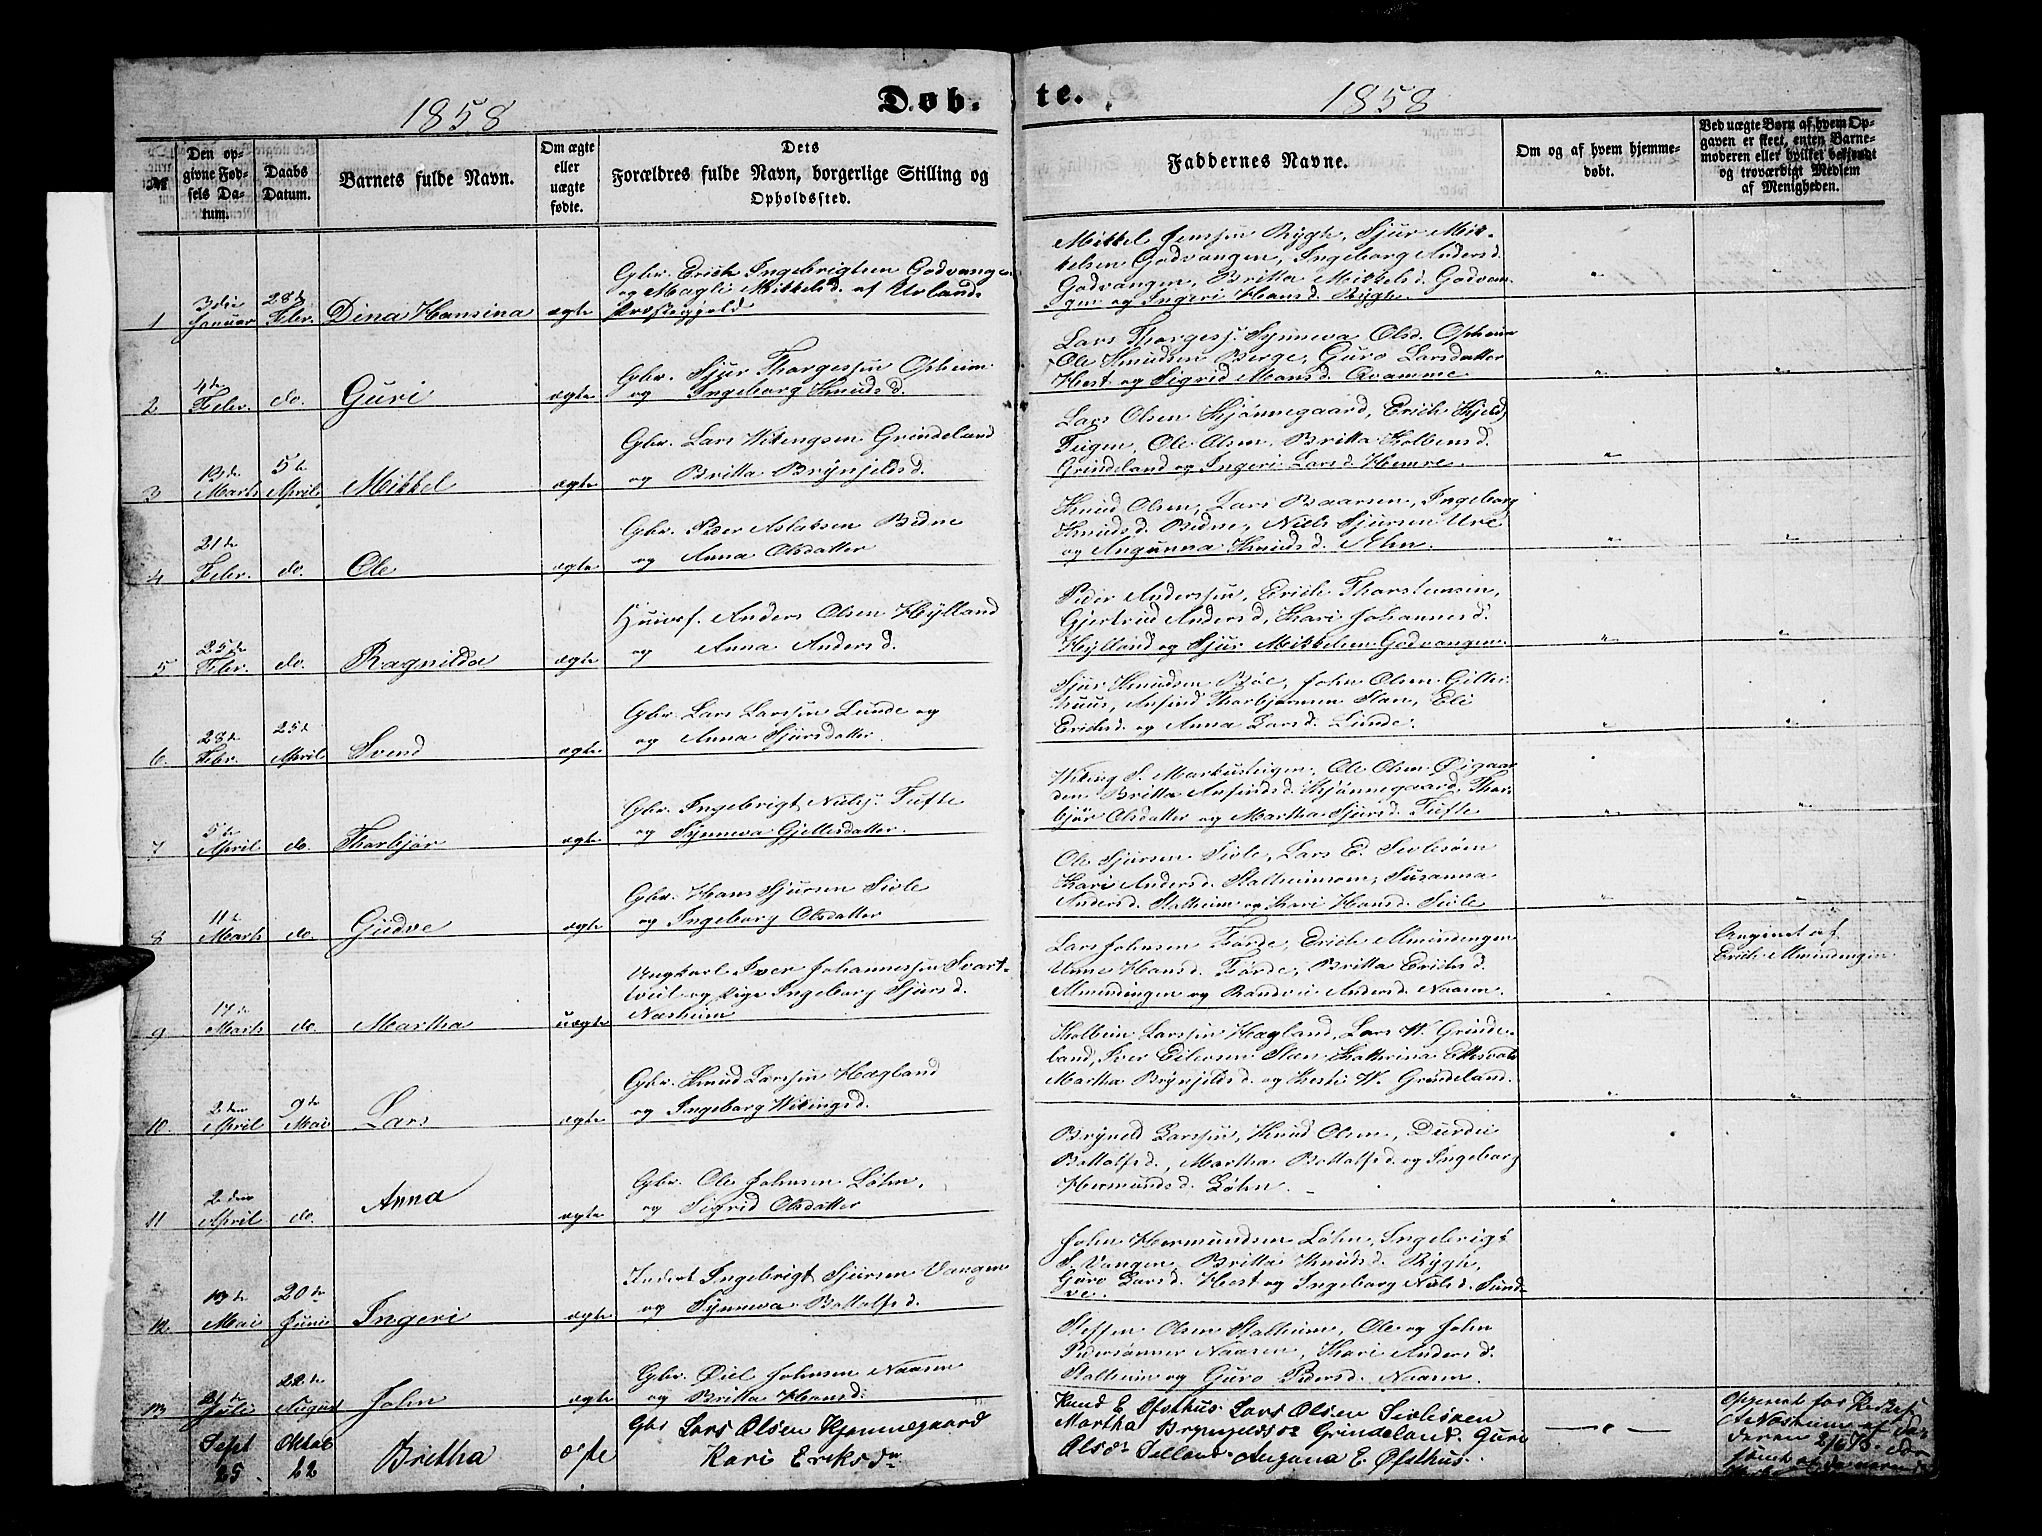 1858
Døb.
te.
1858
№
Den op-
givne Fød-
sels Da-
tum.
Daabs
Datum.
Barnets fulde Navn.
Om ægte
eller
uægte
fødte.
Dets
Forældres fulde Navn, borgerlige Stilling og
Opholdssted.
Faddernes Navne.
Om og af hvem hjemme-
døbt.
Ved uægte Børn af hvem Op-
gaven er skeet, enten Barne-
moderen eller hvilket bekjendt
og troværdigt Medlem
af Menigheden.
1
3die Januar
28de Febr.
Dina Hansina
ægte
Gbr. Erich Ingebrigtsen Godvangen
og Magli Mikkelsd. af Urlands
Præstegjeld
Mikkel Jenssen Rygh, Sjur Mik-
kelsen Godvangen, Ingeborg Andersd.
Godvangen, Britta Mikkelsd. Godvan-
gen og Ingeri Hansd. Rygh.
2
4de Febr.
do.
Guri
ægte
Gbr. Sjur Thorgessen Opheim
og Ingeborg Knudsd.
Lars Thorgess. Synneva Olsd. Opheim
Ole Knudsen Berge, Guro Larsdatter
Hest og Sigrid Monsd. Qvamme
3
13de Marts
5te April
Mikkel
ægte
Gbr. Lars Vikingsen Grindeland
og Britta Brynjeldsd.
Lars Olsen Hjønnegaard, Erich Kjelds.
Teigen, Ole Olsen, Britta Kolbensd.
Grindeland og Ingeri Larsd. Hemre.
4
21de Febr.
do.
Ole
ægte
Gbr. Peder Aslaksen Bidne
og Anna Olsdatter
Knud Olsen, Lars Baarsen, Ingeborg
Knudsd. Bidne, Niels Sjursen Ure
og Angunna Knudsd.
5
25de Febr.
do.
Ragnilda
ægte
Huusf. Anders Olsen Hylland
og Anna Andersd.
Peder Anderssen, Erich Thorstensen,
Gjertrud Andersd, Kari Johannesd.
Hylland og Sjur Mikkelsen Godvangen.
6
28de Febr.
25de April
Svend
ægte
Gbr. Lars Larssen Lunde og
og Anna Sjursdatter.
Sjur Knudsen Bøe, John Olsen Giller-
huus, Anfind Thorbjørnsen Slæn, Eli
Erichsd. og Anna Larsd. Lunde.
7
5te April
do.
Thorbjør
ægte
Gbr. Ingebrigt Niels. Tufte
og Synneva Gjellesdatter.
Viking S. Markusteigen, Ole Olsen Øigaar-
den Britta Anfindsd. Hjønnegaard, Thor-
bjør Olsdatter og Martha Sjursd. Tufte
8
11te Marts
do.
Gudve
ægte
Gbr. Hans Sjursen Sivle
og Ingeborg Olsdatter
Ole Sjursen Sivle, Lars E. Sivlesøen
Kari Andersd. Stalheimsøen, Susanna
Andersd. Stalheim og Kari Hansd. Sivle
9
14de Marts
do.
Martha
uægte
Ungkarl Iver Johannessen Svart-
tveit og Pige Ingeborg Sjursd.
Næsheim
Lars Johnsen Førde, Erich Almindingen
Unne Hansd. Førde, Britta Erichsd.
Almindingen og Randvei Andersd. Naaren.
Angivet af
Erich Almindingen
10
2den April
9de Mai
Lars
ægte
Gbr. Knud Larssen Hægland
og Ingeborg Vikingsd.
Kolbein Larssen Hægland, Lars V. Grinde-
land, Iver Eilersen Slæn Katherina
Martha Brynjeldsd. og Kristi V. Grindeland.
11
2den April
do.
Anna
ægte
Gbr. Ole Johnsen Løhn,
og Sigrid Olsdatter
Bryneld Larssen, Knud Olsen, Durdei
Bottolfsd., Martha Bottolfsd. og Ingeborg
Hermundsd. Løhn.
12
13de Mai
20de Juni
Ingeri
ægte
Inderst Ingebrigt Sjursen Vangen
og Synneva Bottolfsd.
John Hermundsen Løhn, Ingebrigt
S. Vangen, Britta Knudsd. Rygh,
Guro Larsd. Hest og Ingeborg Nielsd. Sund-
ve.
13
21de Juli
22de August
John
ægte
Gbr. Øiel Johnsen Naaren
og Britta Hansd.
Steffen Olsen Stalheim, Ole og John
Pedersønner Naaren, Kari Andersd.
Stalheim og Guro Pedersd. Naaren.
Sept 25
Oktob 22
Britha
ægte
Gbr Lars Olsen Hjønnegaard
Kari Eriksdr
Knud E Øfsthus Lars Olsen Sivlesøen
Martha Brynjeldsdr Grindeland. Guri
Olsdr Angana E. Øfsthus.